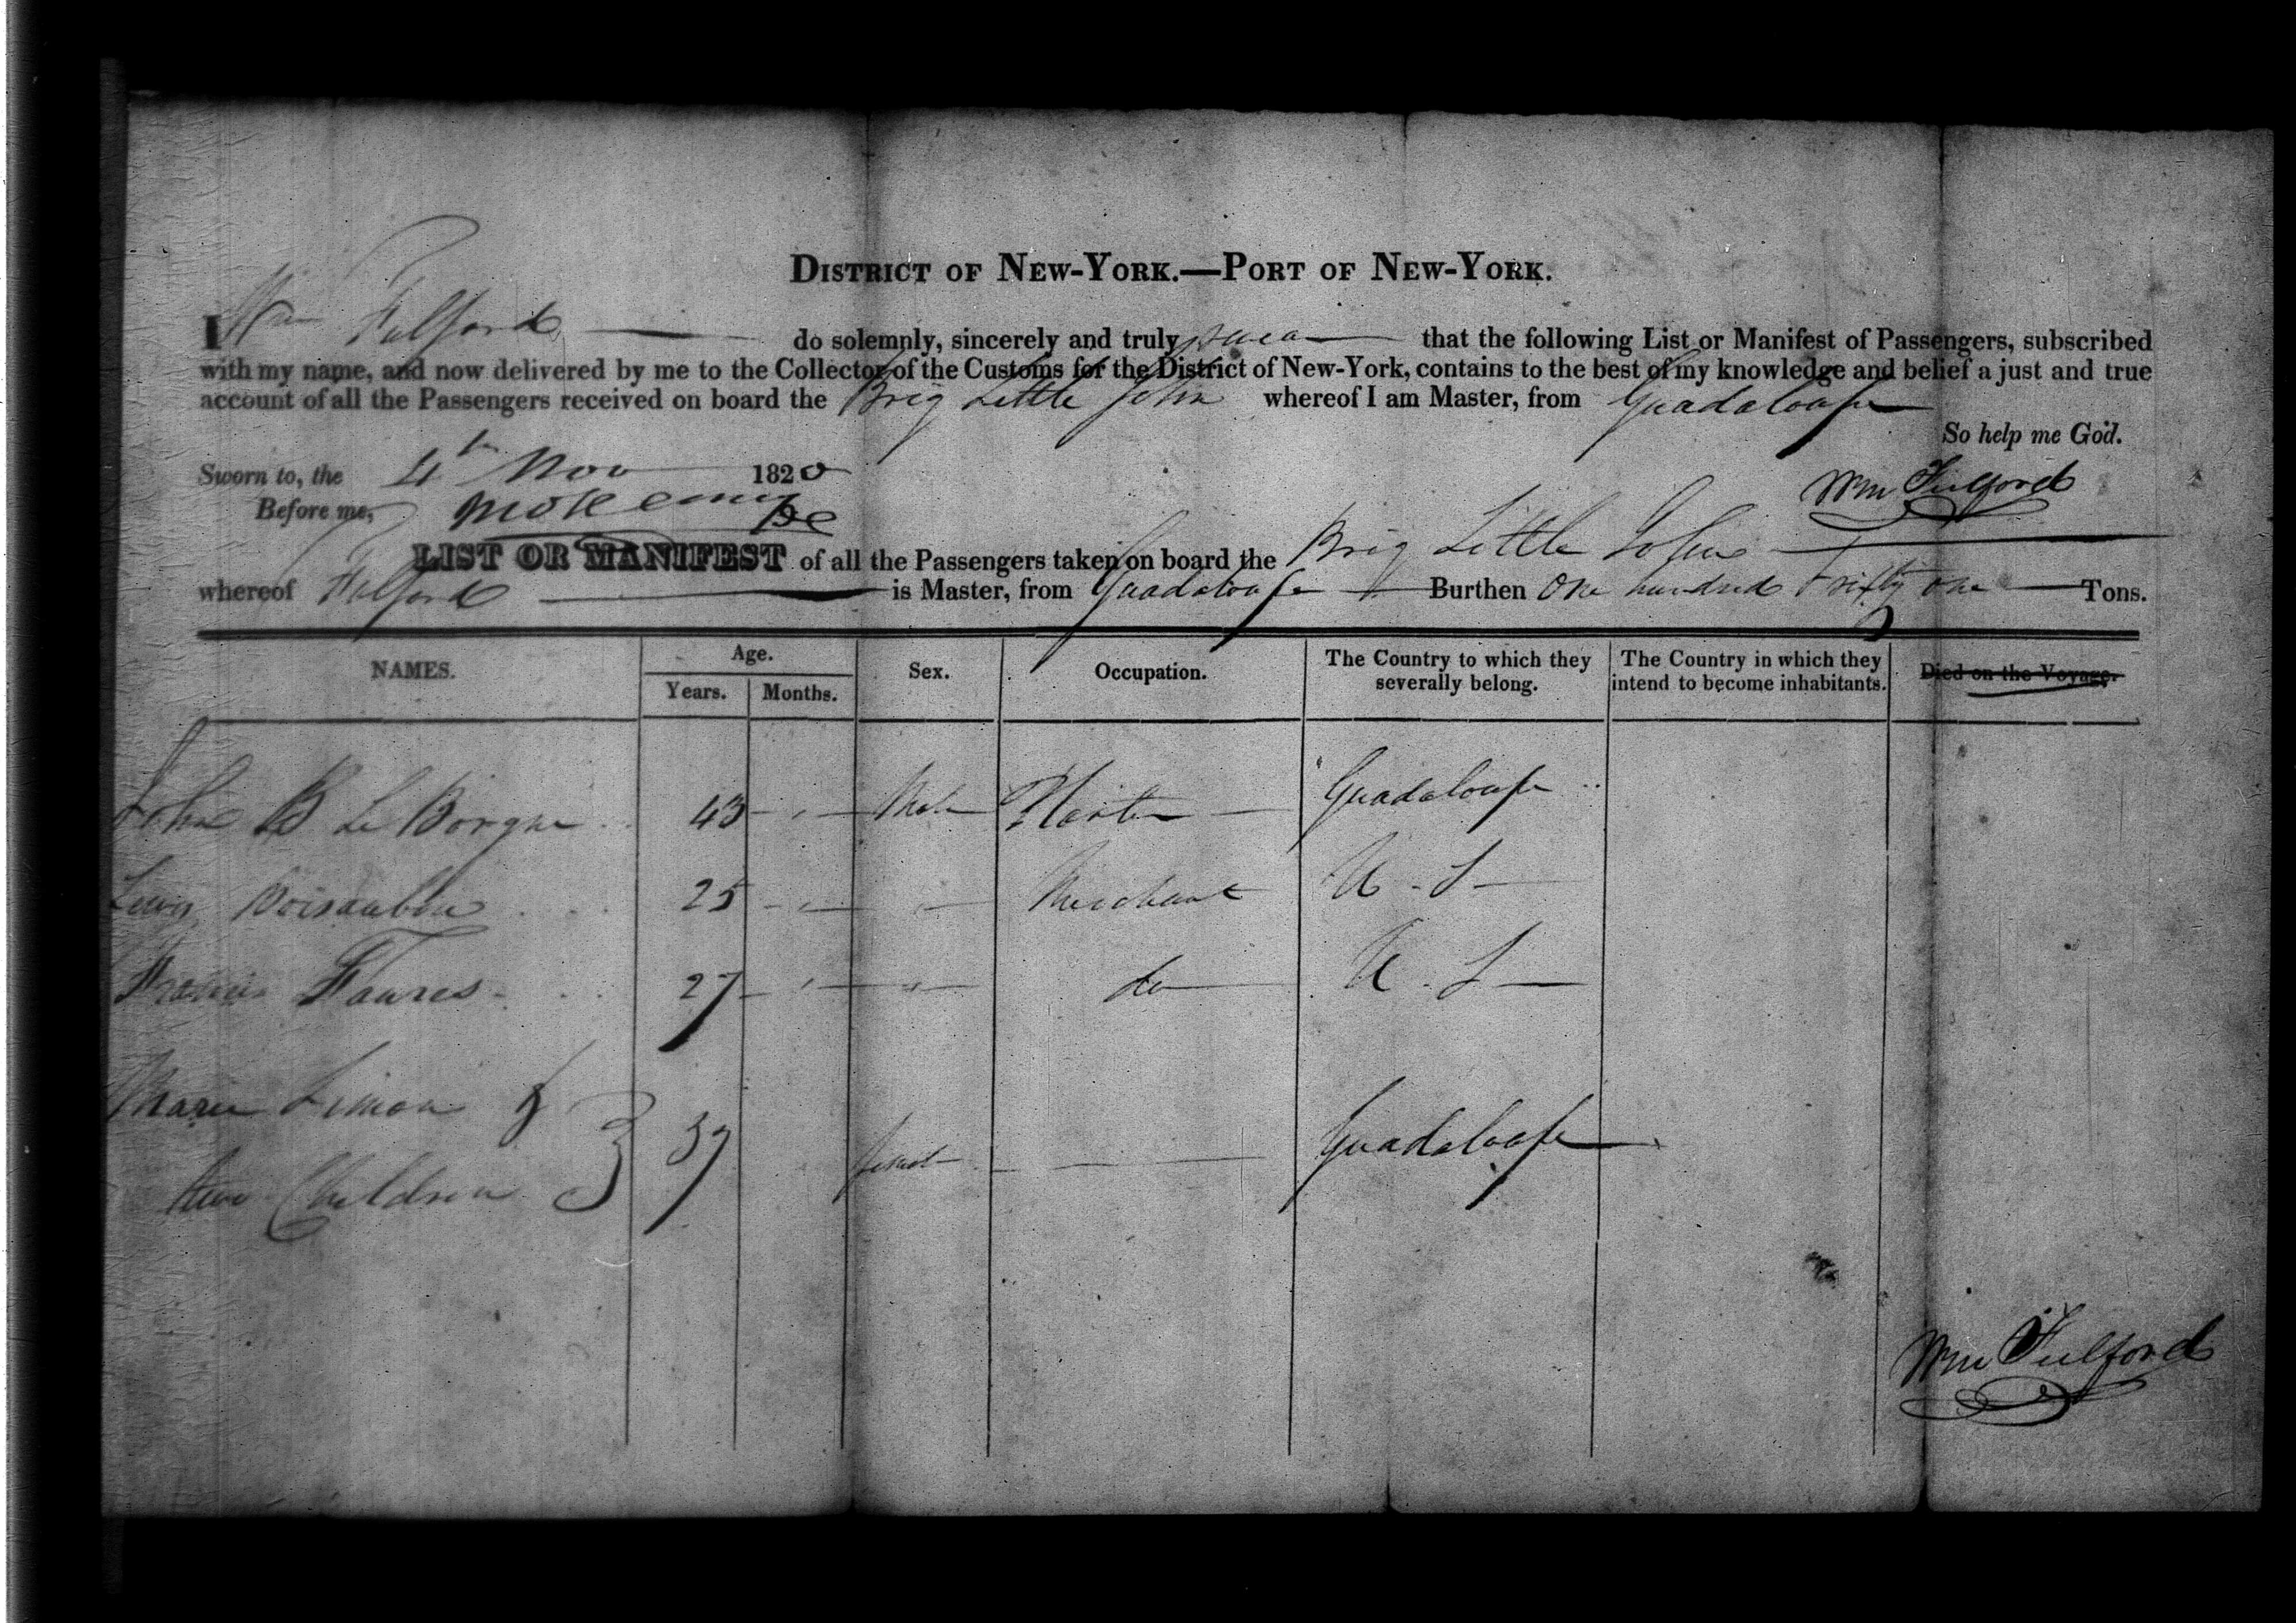 DISTRICT OF NEW-YORK.—PORT OF NEW-YORK.
I Wm Fulford do solemnly, sincerely and truly swear that the following List or Manifest of Passengers, subscribed
with my name, and now delivered by me to the Collector of the Customs for the District of New-York, contains to the best of my knowledge and belief a just and true
account of all the Passengers received on board the Brig Little John whereof I am Master, from Guadaloupe
So help me God.
Sworn to, the 4th Nov 1820
Wm Fulford
Before me,
LIST OR MANIFEST of all the Passengers taken on board the Brig Little John
whereof Fulford is Master, from Guadaloupe Burthen One hundred & sixty one Tons.
NAMES. Age. Years. Months. Sex. Occupation. The Country to which they severally belong. The Country in which they intend to become inhabitants. Died on the Voyage.
John B Le Borgne 43 Male Planter Guadaloupe
Lewis Boisaubin 25 " Merchant U. S
Francis Faures 27 " do U. S
Marie Simon &
two Children } 37 female Guadaloupe
Wm Fulford